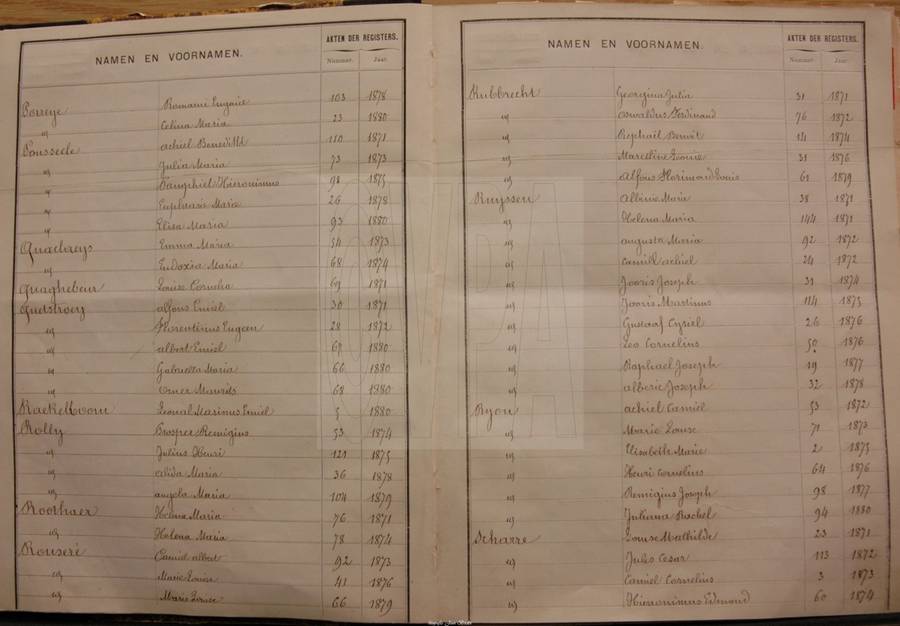 NAMEN EN VOORNAMEN. AKTEN DER REGISTERS.
Nummer. Jaar.
Porreye Romanie Eugenie 103 1878
" Celina Maria 23 1880
Pousseele Achiel Benedikt 110 1871
" Julia Maria 73 1873
" Pamphiel Hieronimus 98 1875
" Euphrasie Maria 26 1878
" Elisa Maria 93 1880
Quaclaeys Emma Maria 54 1873
" Eudoxia Maria 68 1874
Quaghebeur Louise Cornelia 1871
Quetstroey Alfons Emiel 30 1871
" Florentinus Eugeen 28 1872
" Albert Emiel 1880
" Gabriella Maria 66 1880
" Omer Maurits 68 1880
Rackelboom Leonal Marinus Emiel 5 1880
Rolly Prosper Remigius 53 1874
" Julius Henri 121 1875
" Alida Maria 36 1878
" Angela Maria 104 1879
Roothaer Helena Maria 76 1871
" Helena Maria 78 1874
Rouseré Camiel Albert 92 1873
" Marie Louise 41 1876
" Marie Louise 66 1879
NAMEN EN VOORNAMEN. AKTEN DER REGISTERS.
Nummer. Jaar.
Rubbrecht Georgina Julia 31 1871
" Oswaldus Ferdinand 76 1872
" Raphaël Benoit 14 1874
" Marcelline Leonie 31 1876
" Alfons Florimond Louis 61 1879
Ruyssen Albinie Marie 38 1871
" Helena Maria 144 1871
" Augusta Maria 92 1872
" Camiel Achiel 24 1872
" Jooris Joseph 31 1874
" Jooris Martinus 114 1875
" Gustaaf Cyriel 26 1876
" Leo Cornelius 50 1876
" Raphael Joseph 19 1877
" Alberic Joseph 32 1878
Ryon Achiel Camiel 53 1872
" Marie Louise 71 1873
" Elisabeth Marie 2 1875
" Henri Cornelius 64 1876
" Remigius Joseph 98 1877
" Juliana Rachel 94 1880
Scharre Louise Mathilde 23 1871
" Jules Cesar 113 1872
" Camiel Cornelius 3 1873
" Hieronimus Edmond 60 1874